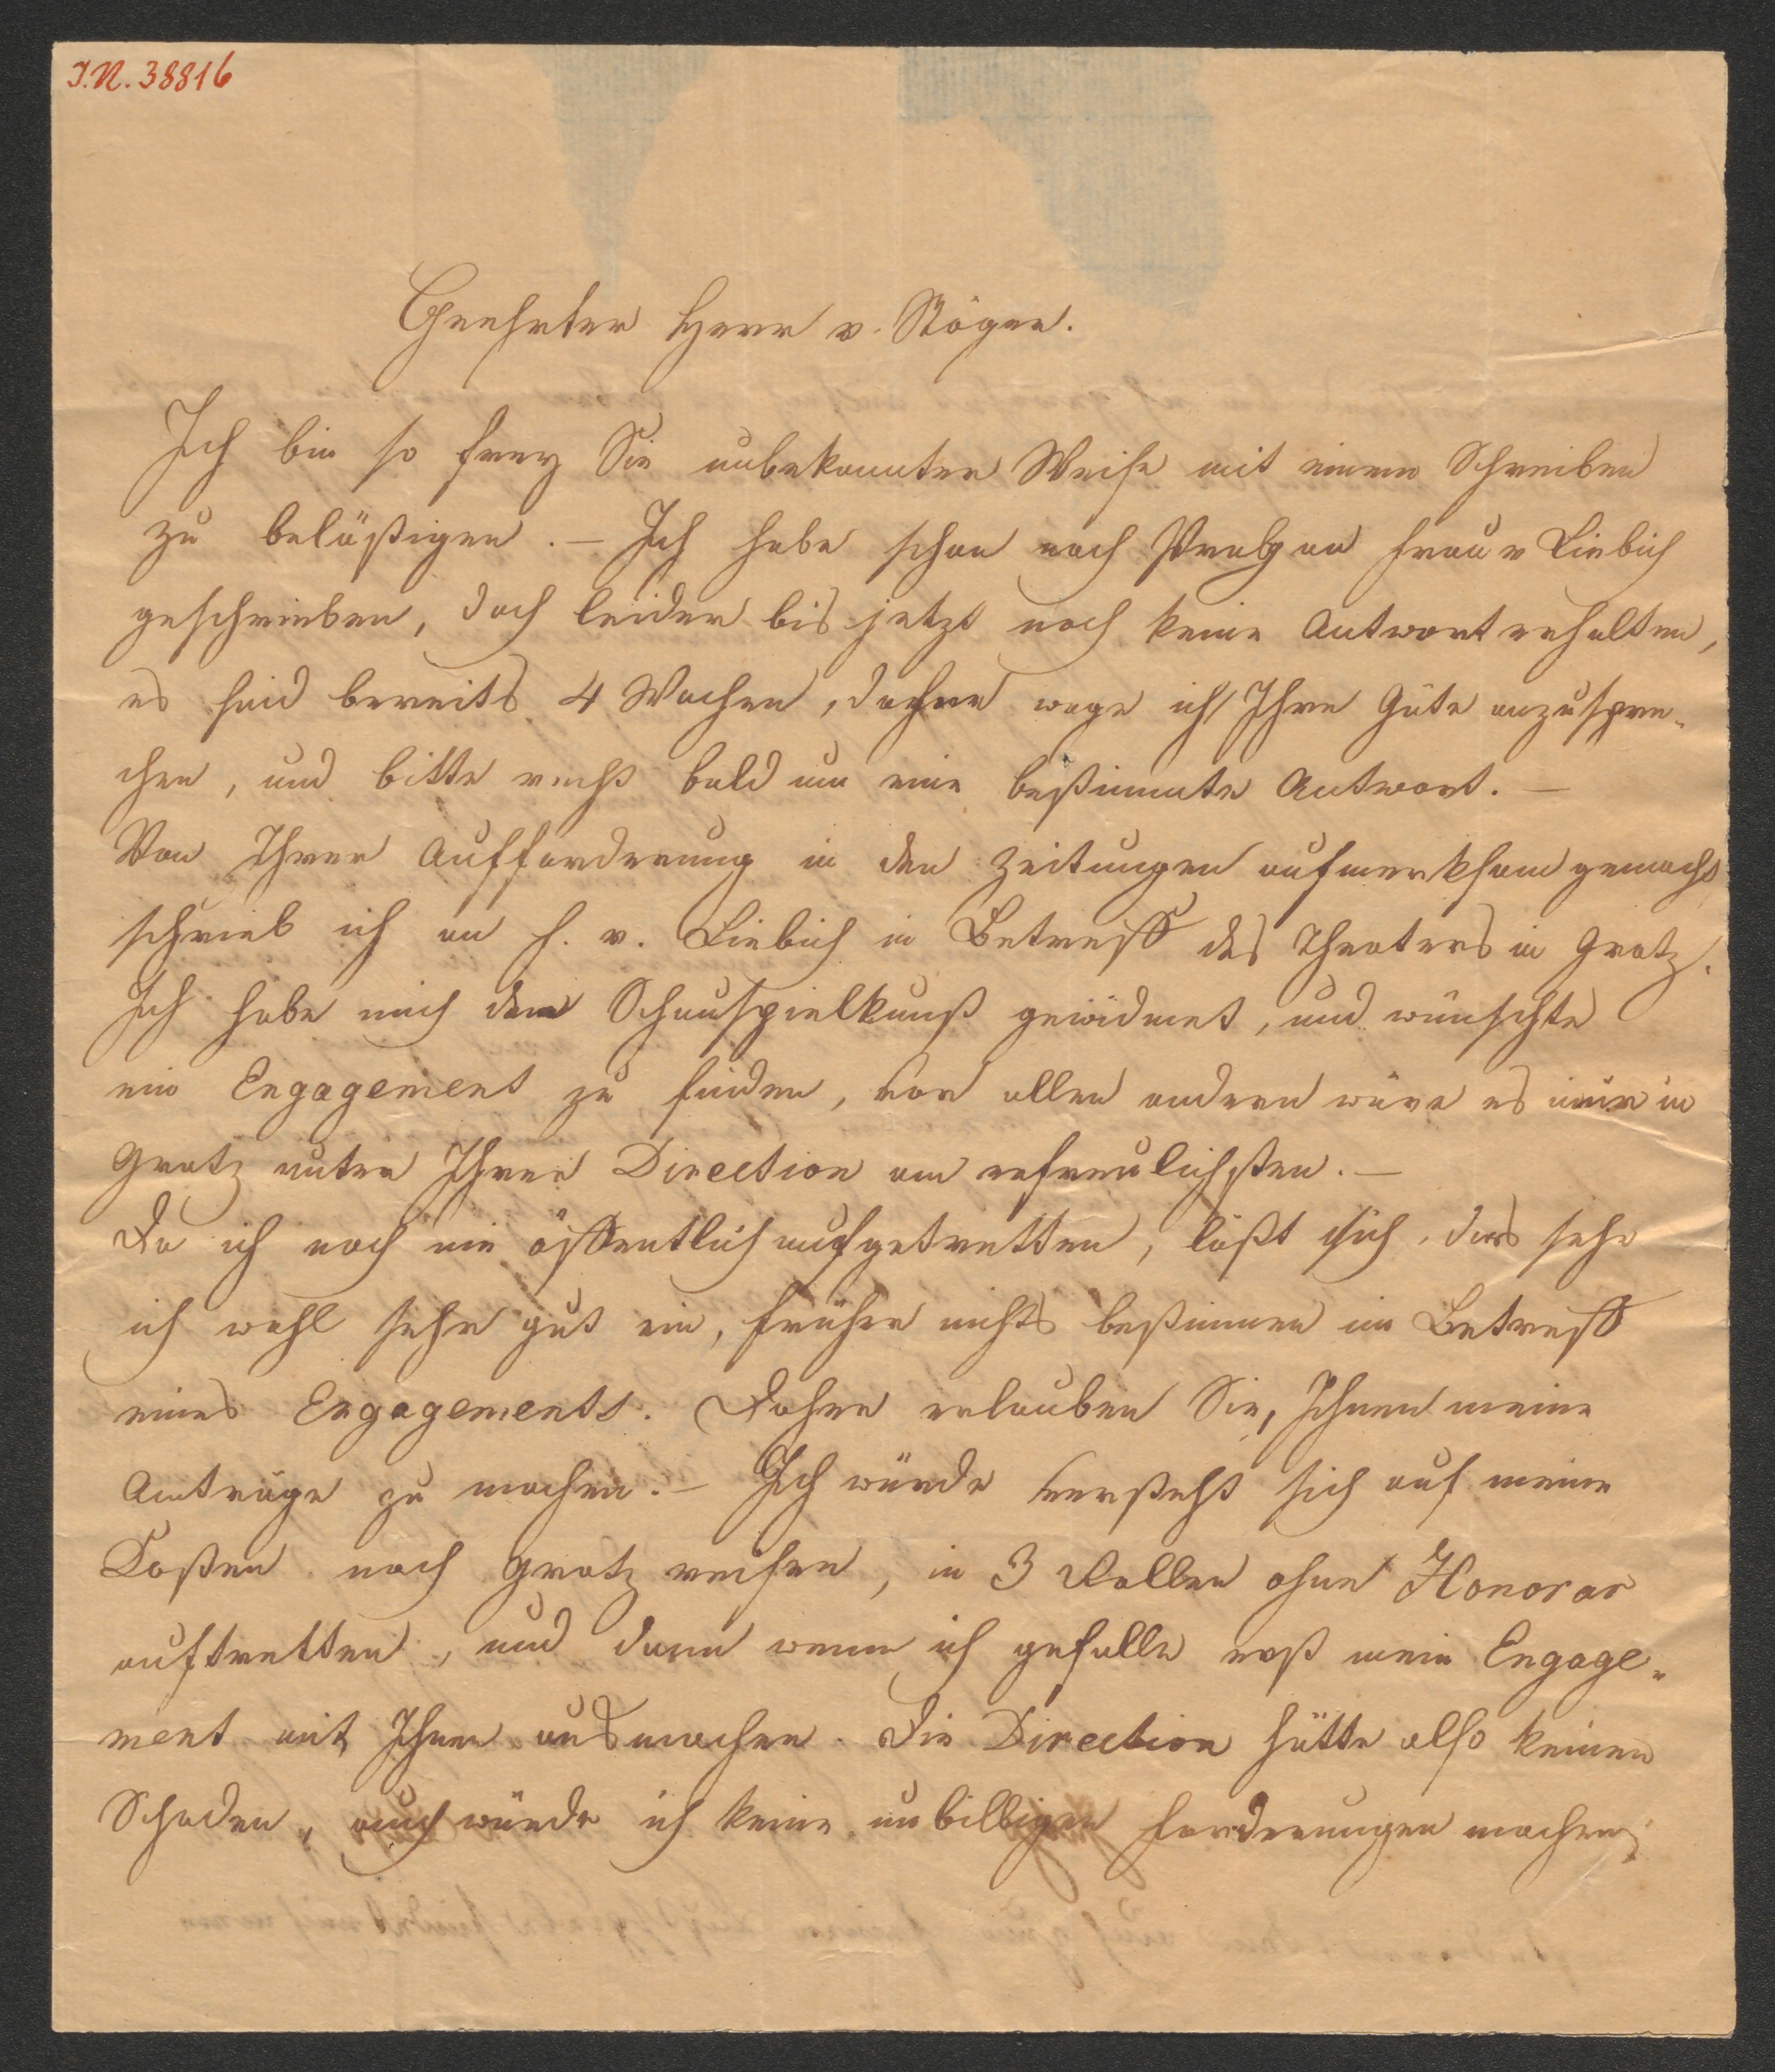 I.N. 38816
Geehrter Herr v. Stöger.
Ich bin so frey Sie unbekannter Weise mit einem Schreiben
zu beläßtigen. – Ich habe schon nach Prag an Frau v Liebich
geschrieben, doch leider bis jetzt noch keine Antwort erhalten,
es sind bereits 4 Wochen, daher wage ich Ihre Güte anzuspre-
chen, und bitte recht bald um eine bestimmte Antwort. –
Von Ihrer Aufforderung in den Zeitungen aufmerksam gemacht
schrieb ich an F. v. Liebich in Betreff des Theaters in Gratz.
Ich habe mich der Schauspielkunst gewidmet, und wünschte
ein Engagement zu finden, vor allen andern wäre es mir in
Gratz unter Ihrer Direction am erfreulichsten. –
Da ich noch nie öffentlich aufgetretten, läßt sich, das sehe
ich wohl sehr gut ein, früher nichts bestimmen im Betreff
eines Engagements. Daher erlauben Sie, Ihnen meine
Anträge zu machen. – Ich würde versteht sich auf meine
Kosten nach Gratz reisen, in 3 Rollen ohne Honorar
auftretten, und dann wenn ich gefalle erst mein Engage-
ment mit Ihnen ausmachen. Die Direction hätte also keinen
Schaden, auch würde ich keine unbilligen Forderungen machen,